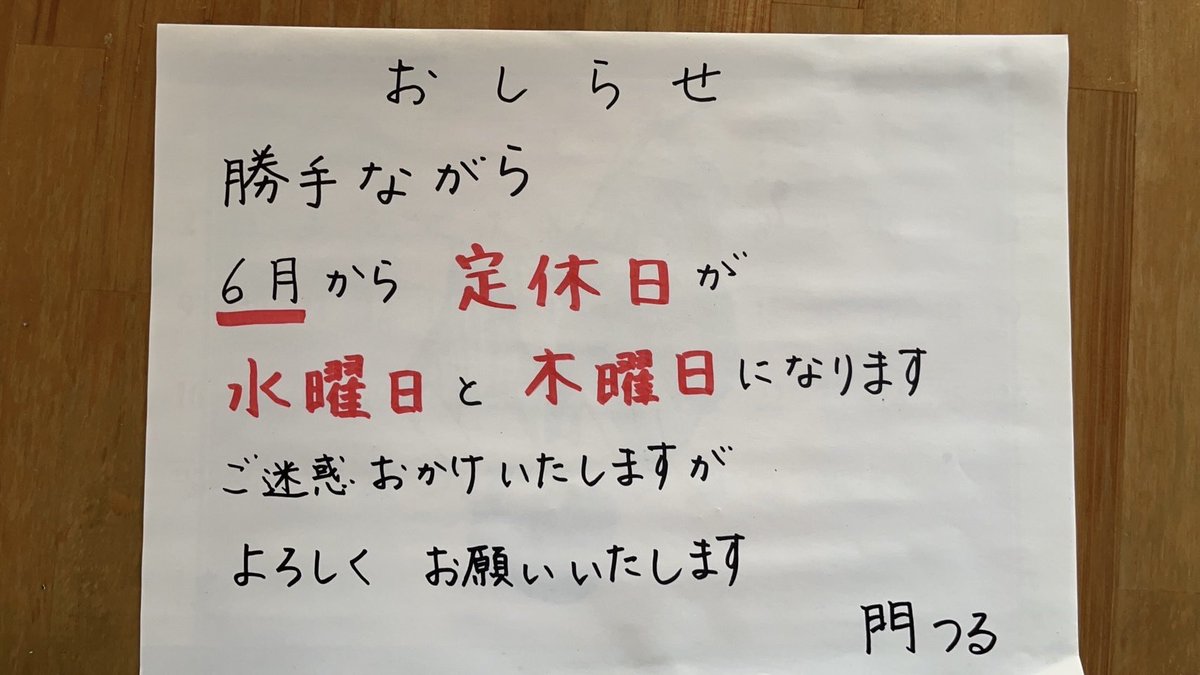 おしらせ
勝手ながら
6月から 定休日が
水曜日と木曜日になります
ご迷惑おかけいたしますが
よろしく お願いいたします
門つる